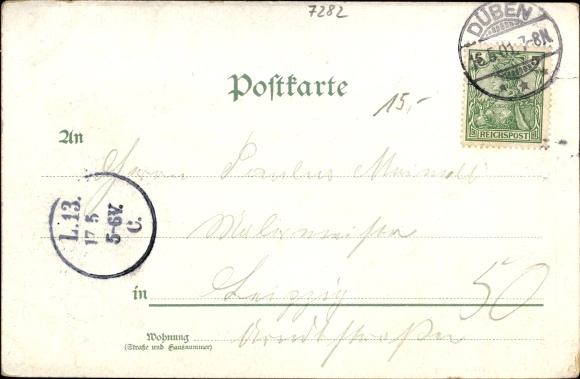 7282
DÜBEN
15.5.01.7-8N.
* *
REICHSPOST
Postkarte
15,-
An
Herrn Paulus
Malermeister
L.13.
17 5
5-6V.
C.
in Leipzig
50
Wohnung
(Straße und Hausnummer)
Arndtstraße